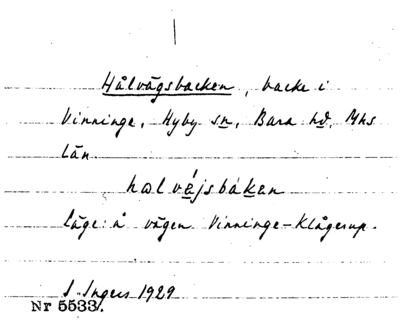 Hålvägsbacken, backe i
Vinninge, Hyby sn, Bara hd, Mhs
län.
halvéjsbáken
läge: å vägen Vinninge-Klågerup.
S. Ingers 1929
Nr 5533.